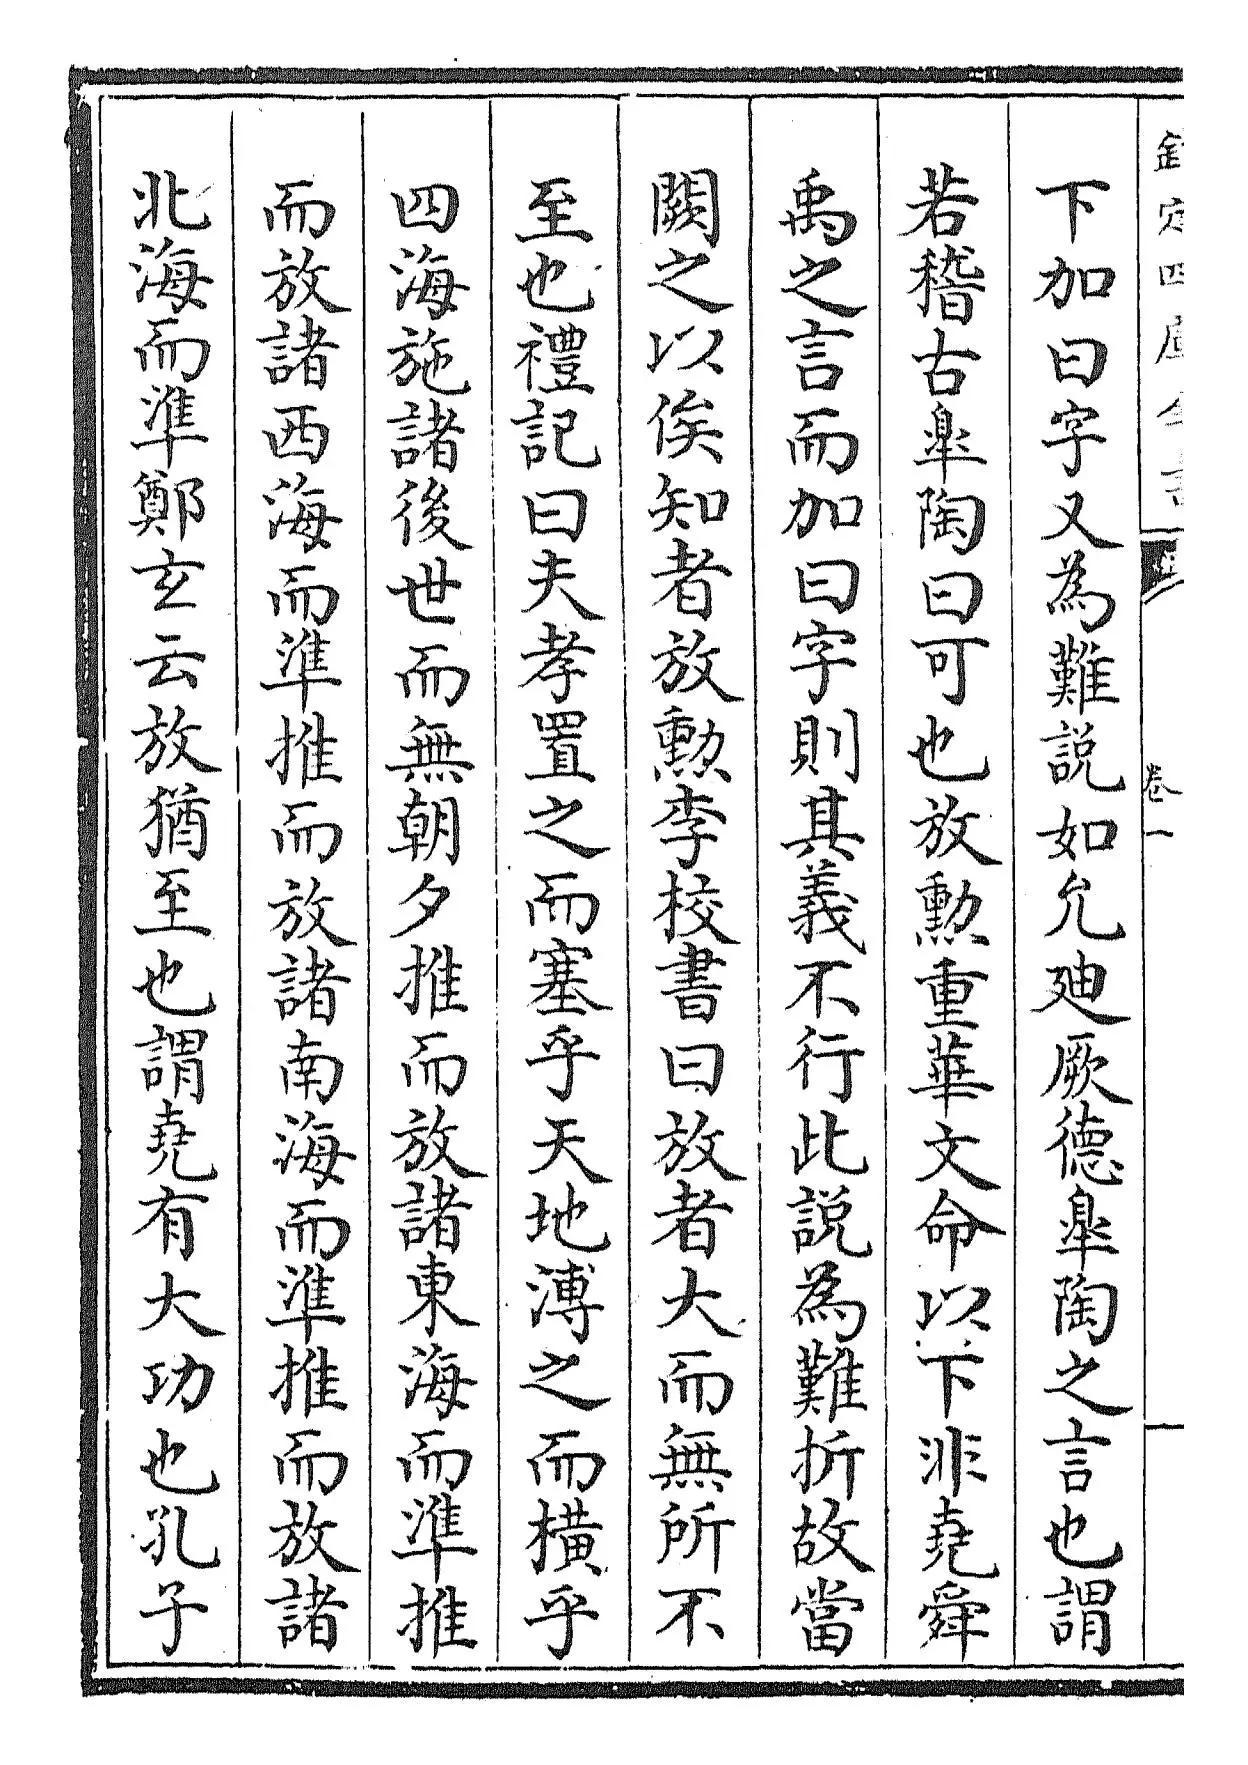 欽定四庫全書
卷一
下加曰字又為難說如允廸厥德臯陶之言也謂
若稽古臯陶曰可也放勲重華文命以下非堯舜
禹之言而加曰字則其義不行此說為難折故當
闕之以俟知者放勲李校書曰放者大而無所不
至也禮記曰夫孝置之而塞乎天地溥之而橫乎
四海施諸後世而無朝夕推而放諸東海而準推
而放諸西海而準推而放諸南海而準推而放諸
北海而準鄭玄云放猶至也謂堯有大功也孔子